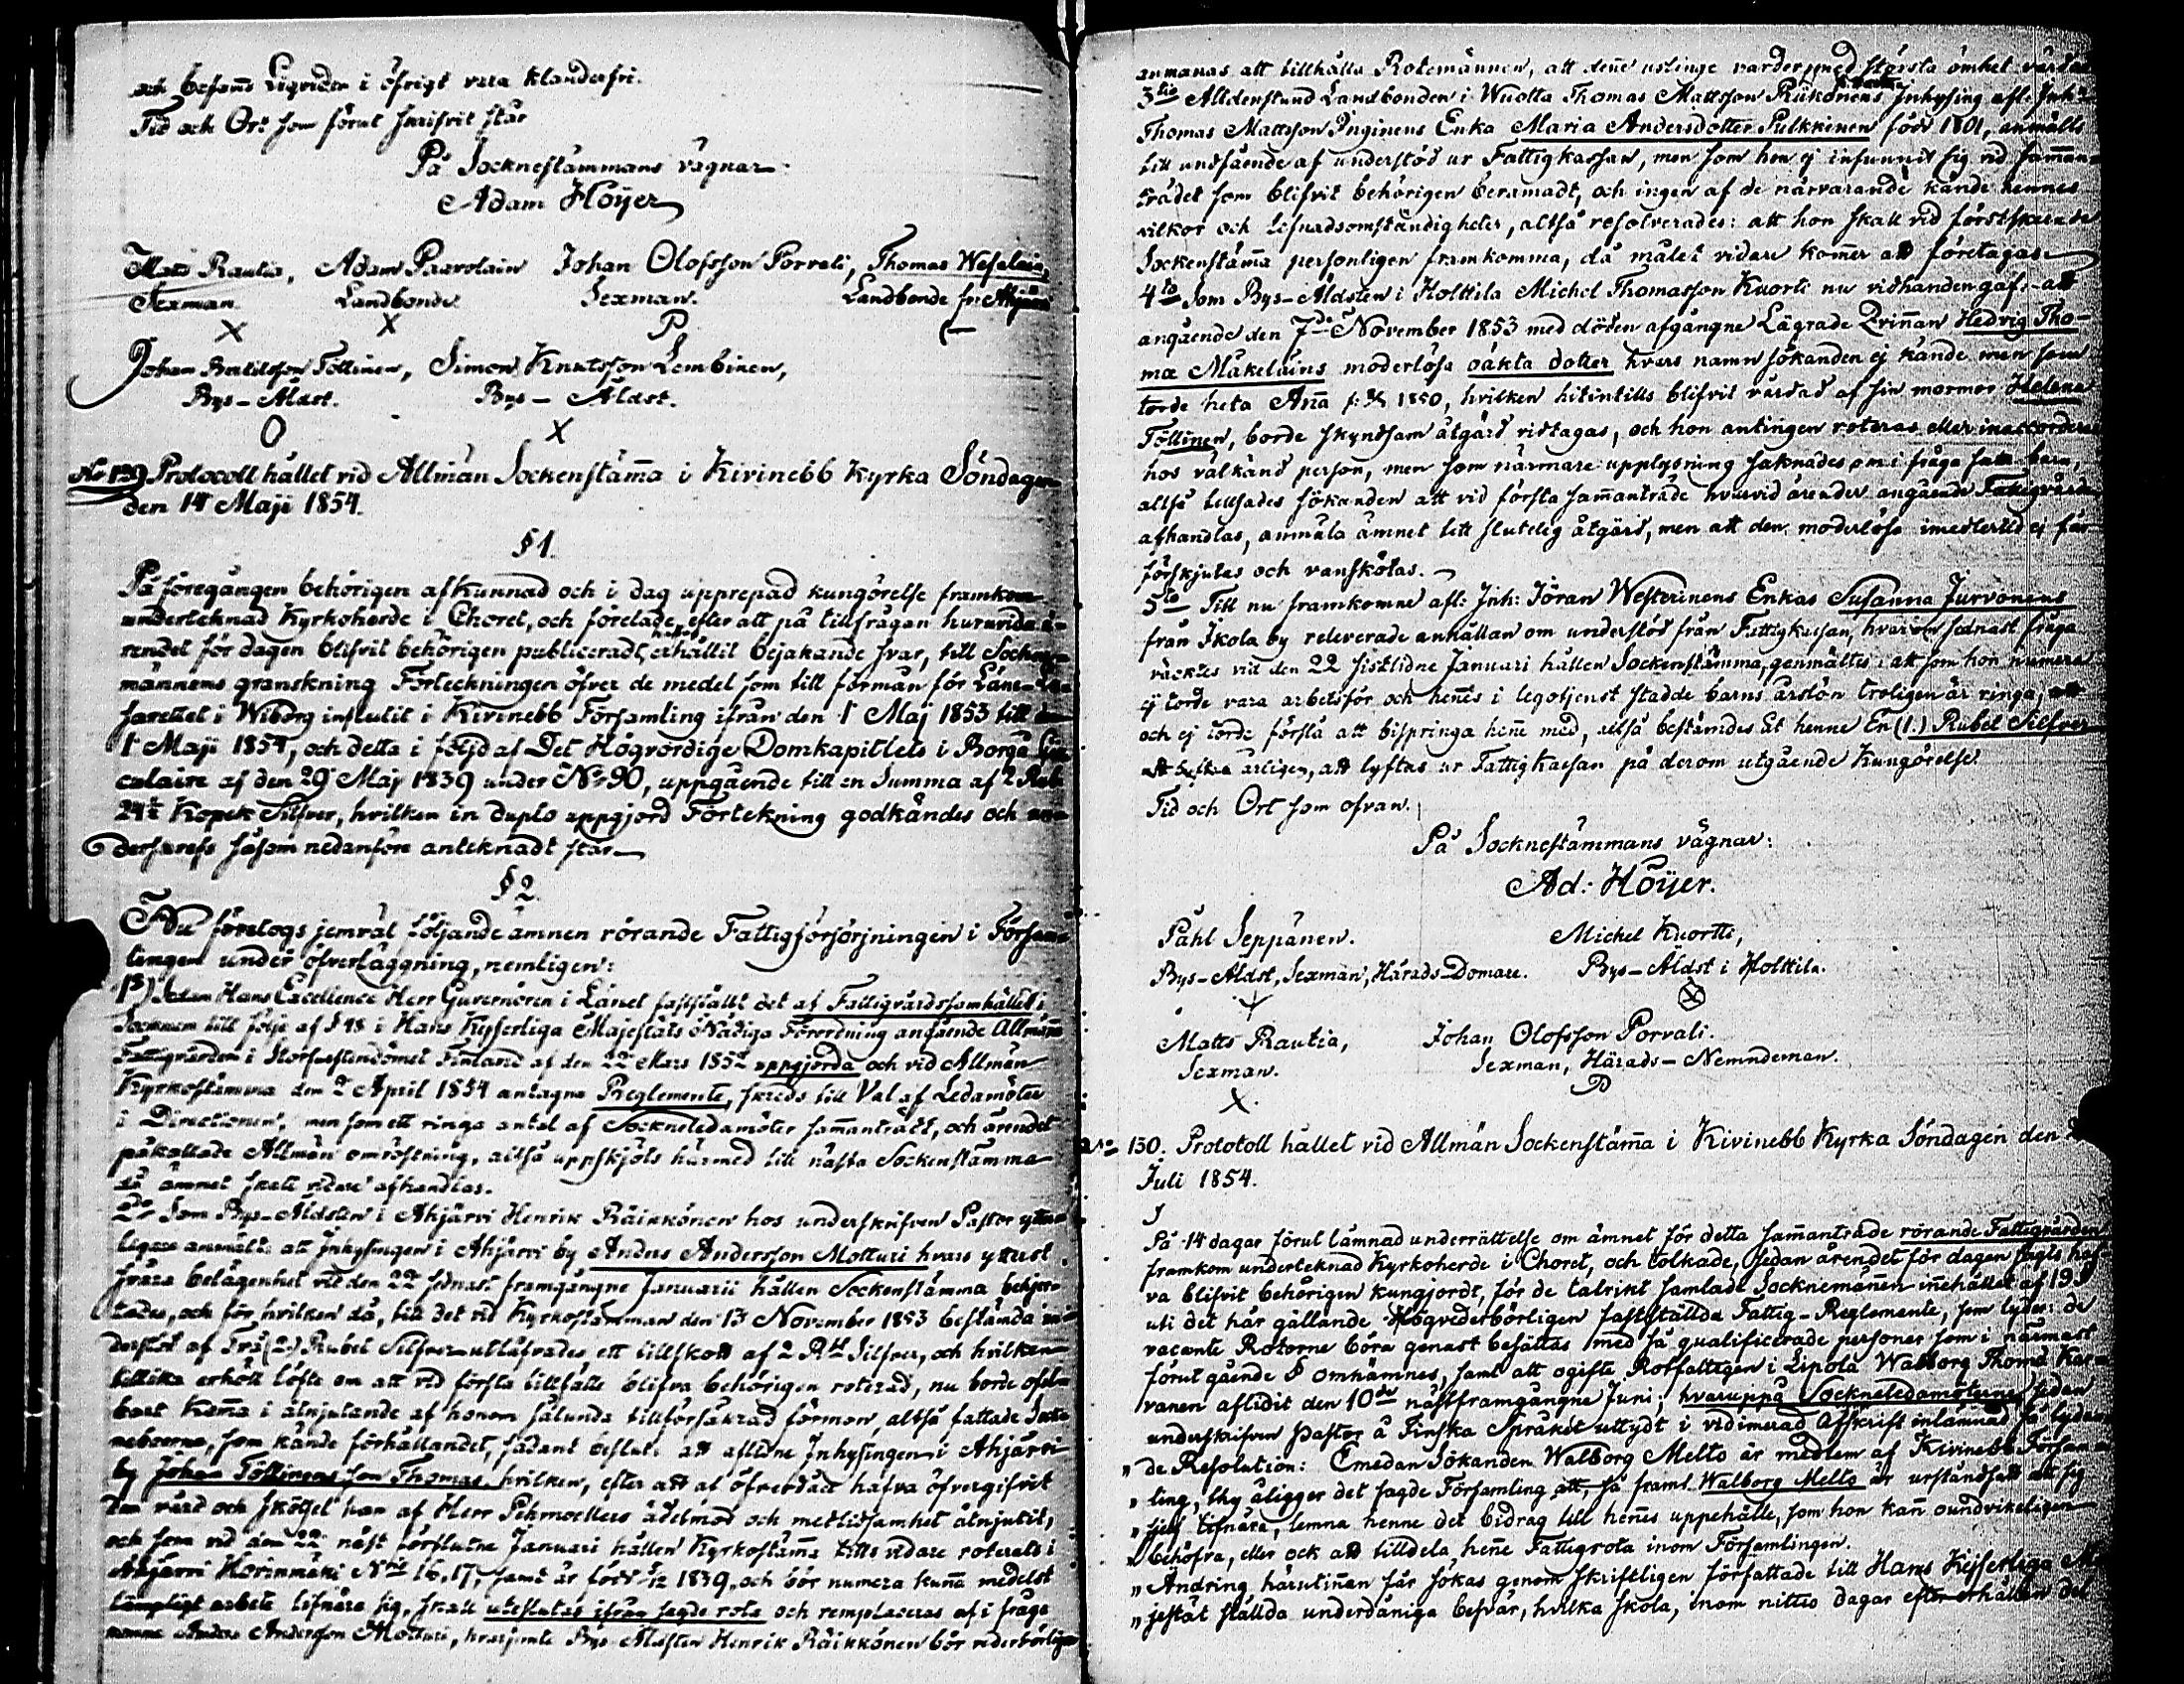 och befanns Liqviden i öfrigt vara klanderfri.
Tid och Ort som förut skrifvit står
På Socknestämmans vägnar
Adam Höijer
Matts Rautia, Adam Paavolain Johan Olofsson Porvali, Thomas Wesalain,
Sexman. Landbonde. Sexman. Landbonde fr: Ahjärvi
X X P
Johan Bertilsson Töllinen, Simon Knutsson Lembinen,
Bys-Äldst. Bys-Äldst.
O X
No 129) Protocoll hållet vid Allmän Sockenstäm̄a i Kivinebb Kyrka Söndagen
den 14 Maji 1854.
§ 1.
På föregången behörigen afkunnad och i dag upprepad kungörelse framkom
underteknad Kyrkoherde i Choret, och förelade, efter att på tillfrågan huruvida ä-
rendet för dagen blifvit behörigen publiceradt, erhållit bejakande svar, till Socken-
männens granskning Förteckningen öfver de medel som till förmån för Läne-La-
sarettet i Wiborg influtit i Kivinebb Församling ifrån den 1 Maj 1853 till den
1 Maji 1854, och detta i följd af Det Högvördige Domkapitlets i Borgå Cir-
culaire af den 29 Maj 1839 under No 90, uppgående till en Summa af 2 Rub.
24½ Kopek Silfver, hvilken in duplo uppgjord Förtekning godkändes och un-
derskrefs såsom nedanföre anteknadt står.
§ 2.
Nu företogs jemväl följande ämnen rörande Fattigförsörjningen i Försam-
lingen under öfverläggning, nemligen:
1o) Sedan Hans Excellence Herr Guvernören i Länet fastställt det af Fattigvårdssamhället i
Socknen till följe af § 48 i Hans Kejserliga Majestäts Nådiga Förordning angående Allmänna
Fattigvården i Storfurstendömet Finland af den 22 Mars 1852 uppgjorda och vid Allmän
Kyrkostämma den 2 April 1854 antagna Reglemente, skreds till Val af Ledamöter
i Directionen, men som ett ringa antal af Sockneledamöter sam̄anträdt, och ärendet
påkallade Allmän omröstning, altså uppskjöts härmed till nästa Sockenstämma
då ämnet skall vidare afhandlas.
2do Som Bys-Äldsten i Ahjärvi Henrik Räikkönen hos underskrifven Pastor ytter-
ligare anmält: att Inhysingen i Ahjärvi by Anders Andersson Motturi hvars ytterst
svåra belägenhet vid den 22 sednast framgångne Januarii hållen Sockenstämma behjer-
tades, och för hvilken då, till det vid Kyrkostämman den 13 November 1853 bestämda un-
derstöd af Två (2) Rubel Silfver utlåfvades ett tillskott af 2 Rbl Silfver, och hvilken
tillika erhöll löfte om att vid första tillfälle blifva behörigen roterad, nu borde ofel-
bart kom̄a i åtnjutande af honom sålunda tillförsäkrad förmon, altså fattade Sock-
neboerne, som kände förhållandet, sådant beslut: att aflidne Inhysingen i Ahjärvi
by Johan Töllinens son Thomas, hvilken, efter att af öfverdåd hafva öfvergifvit
den vård och skötsel han af Herr Pehmoellers ädelmod och medlidsamhet åtnjutit,
och som vid den 22 näst förflutne Januari hållen Kyrkostäm̄a tills vidare roterats i
Ahjärvi Horinmäki No 16, 17, samt är född 1839, och bör numera kun̄a medelst
lämpligt arbete lifnära sig, skall uteslutas ifrån sagde rota och remplaceras af i fråga
Anders Andersson Motturi, hvarjemte Bys-Äldsten Henrik Räikkönen bör vederbörligen
anmanas att tillhålla Rotemännen, att den̄e uslinge varder med största ömhet vårdad
3tio Alldenstund Landbonden i Wuotta Thomas Mattsson Riikonens Inhysing afl: Inh:
Thomas Mattsson Inginens Enka Maria Andersdotter Pulkkinen född 1801, anmälts
till undfående af understöd ur Fattigkassan, men som hon ej infunnit sig vid samman-
trädet som blifvit behörigen beramadt, och ingen af de närvarande kände hennes
vilkor och lefnadsomständigheter, altså resolverades: att hon skall vid förstskeende
Sockenstäm̄a personligen framkomma, då målet vidare kom̄er att företagas.
4to Som Bys-Äldsten i Holttila Michel Thomasson Kuortti nu vidhandengaf: att
angående den 7de November 1853 med döden afgångne Lägrade Qvin̄an Hedvig Tho-
mæ Mäkeläins moderlösa oäkta dotter hvars namn sökanden ej kände men som
torde heta An̄a f: 1850, hvilken hitintills blifvit vårdad af sin mormor Helena
Töllinen, borde skyndsam åtgärd vidtagas, och hon antingen roteras eller inaccorderas
hos välkänd person, men som närmare upplysning saknades om i fråga satt barn,
altså tillsades sökanden att vid första sam̄anträde hvarvid ärender angående Fattigvården
afhandlas, anmäla ämnet till slutelig åtgärd, men att den moderlösa imedlertid ej får
förskjutas och vanskötas.
5to Till nu framkomne afl: Inh: Jöran Westerinens Enkas Susanna Jurvonens
från Ikola by releverade anhållan om understöd från Fattigkassan, hvarom sednast fråga
väcktes vid den 22 sistlidne Januari hållen Sockenstämma, genmältes: att som hon numera
ej torde vara arbetsför och hen̄es i legotjenst stadde barns årslön troligen är ringa, att
och ej torde förslå att bispringa hen̄e med, altså bestämdes åt henne En (1.) Rubel Silfver
årligen, att lyftas ur Fattigkassan på derom utgående Kungörelse.
Tid och Ort som ofvan.
På Socknestämmans vägnar:
Ad: Höijer.
Påhl Seppänen. Michel Kuortti,
Bys-Äldst, Sexman, Härads-Domare. Bys-Äldst i Holttila.
X
Matts Rautia, Johan Olofsson Porvali.
Sexman. Sexman, Härads-Nemndeman.
X. P
No 130. Protokoll hållet vid Allmän Sockenstäm̄a i Kivinebb Kyrka Söndagen den
Juli 1854.
§
På 14 dagar förut lämnad underrättelse om ämnet för detta sam̄anträde rörande Fattigvården
framkom underteknad Kyrkoherde i Choret, och tolkade, sedan ärendet för dagen sagts haf-
va blifvit behörigen kungjordt, för de talrikt samlade Socknemän̄en in̄ehållet af 19 §
uti det här gällande Högvederbörligen fastställda Fattig-Reglemente, som lyder: de
vacante Rotorne böra genast besättas med så qualificerade personer som i närmast
förut gående § omnämnes, samt att ogifte Rotfattigen i Lipola Walborg Thomæ Kar-
vanen aflidit den 10de nästframgångne Juni; hvaruppå Sockneledamöterne sedan
underskrifven Pastor å Finska Språket uttydt i vidimerad Afskrift inlämnad så lydan-
„ de Resolution: Emedan Sökanden Walborg Melto är medlem af Kivinebb Försam-
„ ling, thy åligger det sagde Församling att, så framt Walborg Melto är urståndsatt att sig
„ sjelf lifnära, lemna henne det bidrag till hen̄es uppehälle, som hon kan̄ oundvikeligen
„ behöfva, eller ock att tilldela hen̄e Fattigrota inom Församlingen.
„ Ändring härutin̄an får sökas genom skriftligen författade till Hans Kejserliga Ma-
„ jestät ställda underdåniga besvär, hvilka skola, inom nittio dagar efter erhållen del